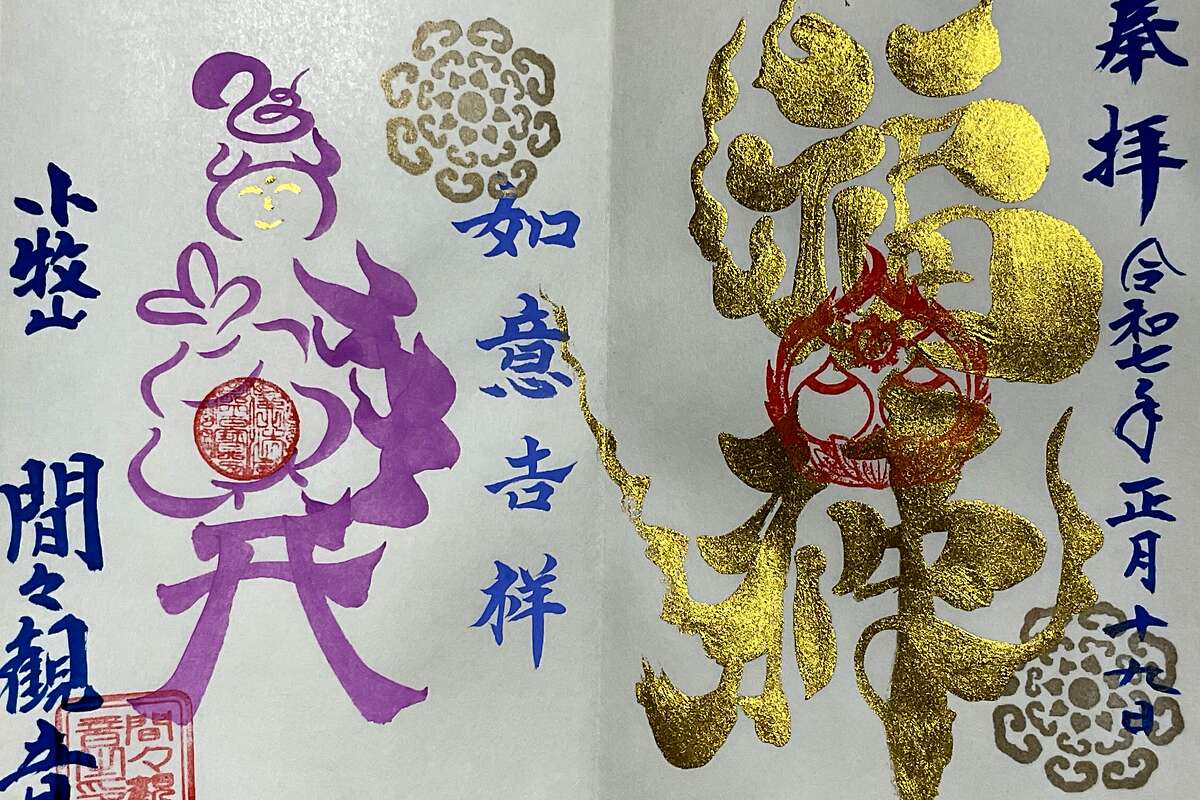 奉拝
令和七年 正月十九日
福神
如意吉祥
小牧山
間々観音